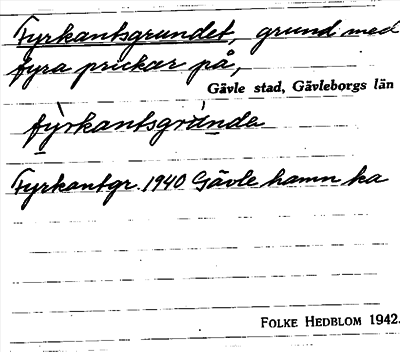 Fyrkantsgrundet, grund med
fyra prickar på,
Gävle stad, Gävleborgs län
fỳrkantsgrùnde
Fyrkantgr. 1940 Gävle hamn ka
FOLKE HEDBLOM 1942.